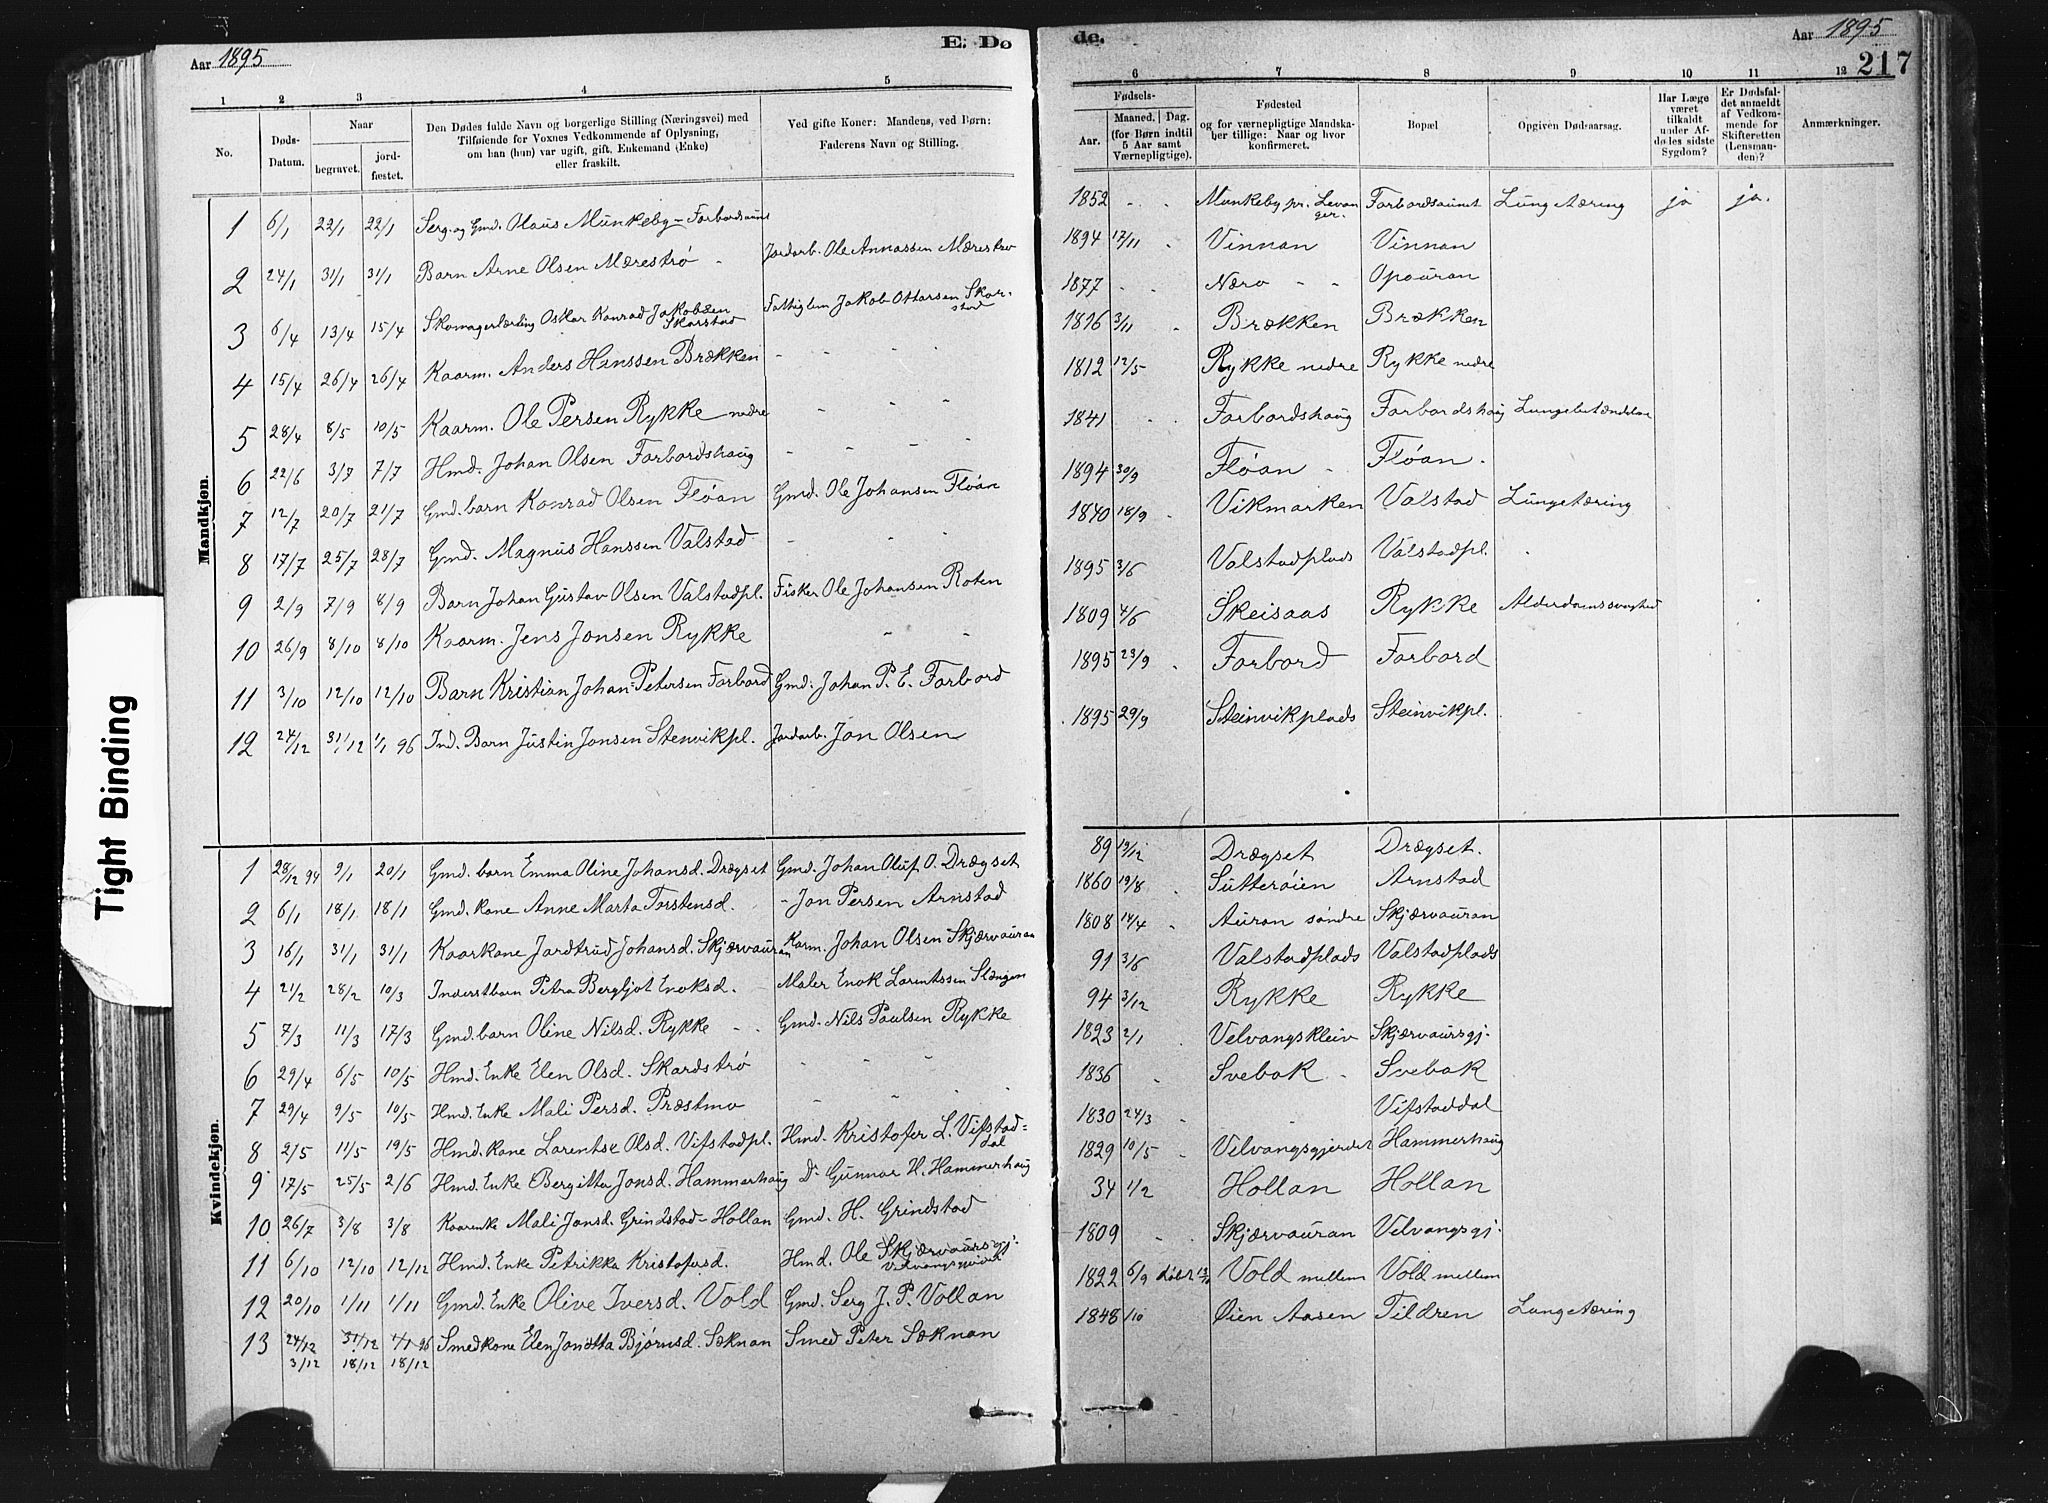 Aar 1895
E. Dø
de.
Aar 1895
217
1 2 3 4 5
6 7 8 9 10 11 12
No.
Døds-Datum.
Naar
begravet.
jord-fæstet.
Den Dødes fulde Navn og borgerlige Stilling (Næringsvei) med
Tilføiende for Voxnes Vedkommende af Oplysning,
om han (hun) var ugift, gift, Enkemand (Enke)
eller fraskilt.
Ved gifte Koner: Mandens, ved Børn:
Faderens Navn og Stilling.
Fødsels-
Aar.
Maaned. Dag.
(for Børn indtil
5 Aar samt
Værnepligtige).
Fødested
og for værnepligtige Mandska-
ber tillige: Naar og hvor
konfirmeret.
Bopæl.
Opgiven Dødsaarsag.
Har Læge
været
tilkaldt
under Af-
dødes sidste
Sygdom?
Er Dødsfal-
det anmeldt
af Vedkom-
mende for
Skifteretten
(Lensman-
den)?
Anmærkninger.
Mandkjøn.
1 6/1 22/1 22/1 Serg. og Gmd. Olaus Munkeby-Forbordsaunet 1852 Munkeby pr. Levanger. Forbordsaunet Lungetæring ja ja.
2 24/1 31/1 31/1 Barn Arne Olsen Mærestrø Jordarb. Ole Annassen Mærestrø 1894 17/11 Vinnan Vinnan
3 6/4 13/4 15/4 Skomagerlærling Oskar Konrad Jakobsen Skarstad Fattiglem Jakob Ottersen Skarstad 1877 Nærø Opauran
4 15/4 26/4 26/4 Kaarm. Anders Hanssen Brækken 1816 3/11 Brækken Brækken
5 28/4 8/5 10/5 Kaarm. Ole Persen Rykke nedre 1812 12/5 Rykke nedre Rykke nedre
6 22/6 3/7 7/7 Hmd. Johan Olsen Forbordshaug 1841 Forbordshaug Forbordshaug Lungebetændelse
7 12/7 20/7 21/7 Gmd. barn Konrad Olsen Fløan Gmd. Ole Johansen Fløan 1894 30/9 Fløan Fløan.
8 17/7 25/7 28/7 Gmd. Magnus Hanssen Valstad 1840 18/9 Vikmarken Valstad Lungetæring
9 2/9 7/9 8/9 Barn Johan Gustav Olsen Valstadpl. Fisker Ole Johansen Roten 1895 3/6 Valstadplads Valstadpl.
10 26/9 8/10 8/10 Kaarm. Jens Jonsen Rykke 1809 4/6 Skeisaas Rykke Alderdomssvaghed
11 3/10 12/10 12/10 Barn Kristian Johan Petersen Forbord Gmd. Johan P. E. Forbord 1895 23/9 Forbord Forbord
12 24/12 31/12 1/1 96 Ind. Barn Justin Jonsen Stenvikpl. Jordarb. Jon Olsen 1895 29/9 Steinvikplads Steinvikpl.
Kvindekjøn.
1 28/12 94 9/1 20/1 Gmd. barn Emma Oline Johansd. Drægset Gmd. Johan Oluf O. Drægset 89 19/12 Drægset Drægset.
2 6/1 18/1 18/1 Gmd. kone Anne Marta Torstensd. - Jon Persen Arnstad 1860 19/8 Sutterøien Arnstad
3 16/1 31/1 31/1 Kaarkone Jardtrud Johansd. Skjærvauran Karm. Johan Olsen Skjærvauran 1808 14/4 Auran søndre Skjærvauran
4 21/2 28/2 10/3 Inderstbarn Petra Bergljot Enoksd. Maler Enok Larentssen Slængen 91 3/6 Valstadplads Valstadplads
5 7/3 11/3 17/3 Gmd. barn Oline Nilsd. Rykke Gmd. Nils Paulsen Rykke 94 3/12 Rykke Rykke
6 29/4 6/5 10/5 Hmd. Enke Elen Olsd. Skardstrø 1823 2/1 Velvangskleiv Skjærvaursgj.
7 29/4 9/5 10/5 Hmd. Enke Mali Persd. Præstmo 1836 Svebak Svebak
8 2/5 11/5 19/5 Hmd. kone Larentse Olsd. Vifstadpl. Hmd. Kristofer L. Vifstaddal 1830 24/3 Vifstaddal
9 17/5 25/5 2/6 Hmd. Enke Bergitta Jonsd. Hammerhaug Do Gunnar H. Hammerhaug 1829 10/5 Velvangsgjerdet Hammerhaug
10 26/7 3/8 3/8 Kaarenke Mali Jonsd. Grindstad-Hollan Gmd. H. Grindstad 34 1/2 Hollan Hollan
11 6/10 12/10 12/12 Hmd. Enke Petrikke Kristofersd. Hmd. Ole Skjærvaursgj. 1809 Skjærvauran Velvangsgj.
12 20/10 1/11 1/11 Gmd. Enke Olive Iversd. Vold Gmd. Serg J. P. Vollan 1822 6/9 døbt Vold mellem Vold mellem
13 24/12 31/12 1/1 96 Smedkone Elen Jonetta Bjørnsd. Sæknan Smed Peter Sæknan 1848 /10 Øien Aasen Tildren Lungetæring
3/12 18/12 18/12
Tight Binding